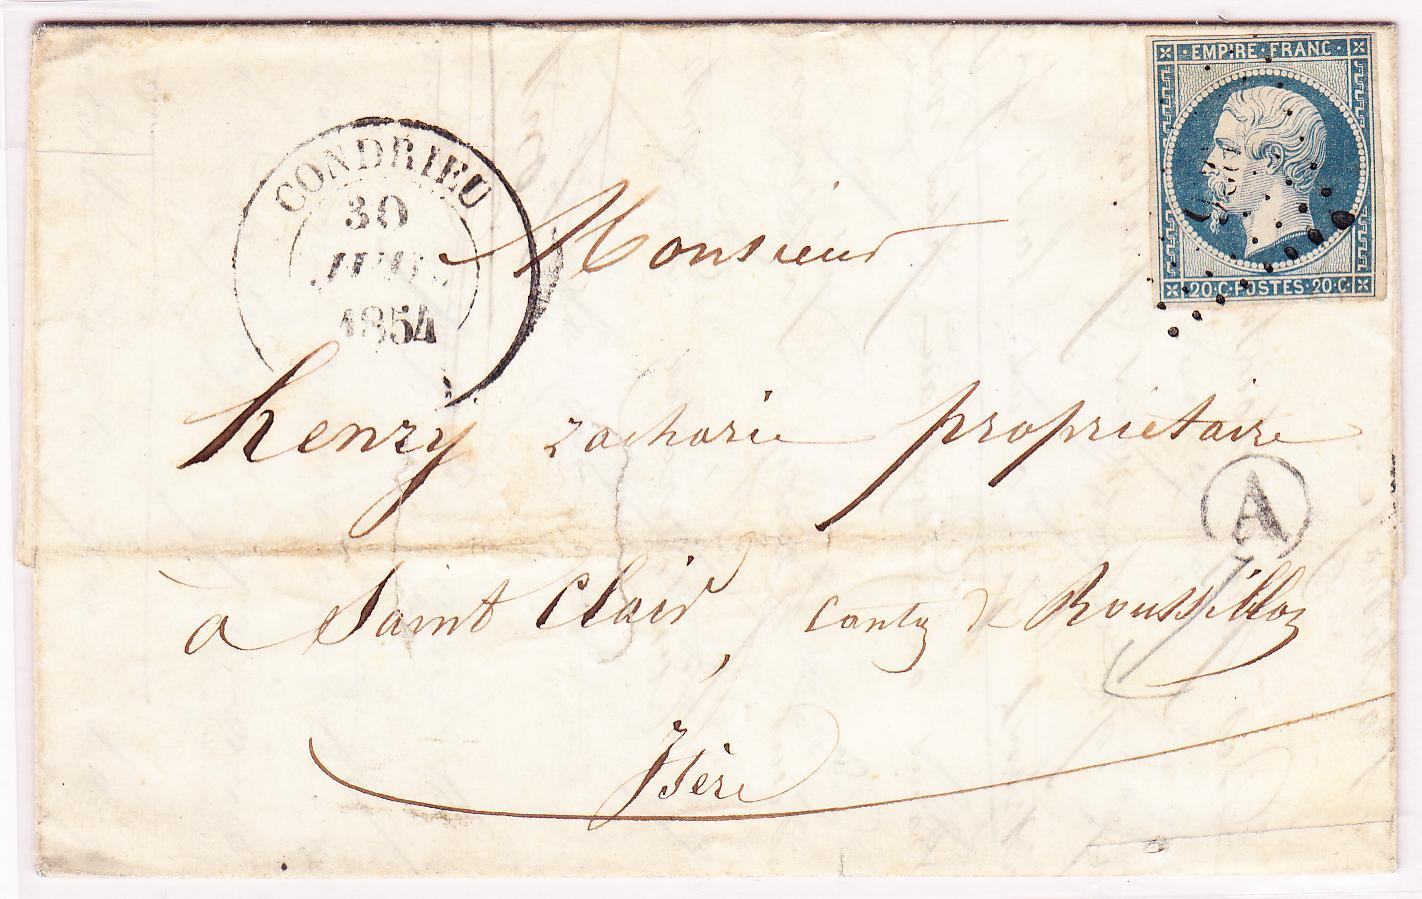 EMPIRE·FRANC·
20·C·POSTES·20·C·
CONDRIEU
30
1854
Monsieur
henry zacharie propriétaire
A
à Saint Clair, Canton de Roussillon
Isère